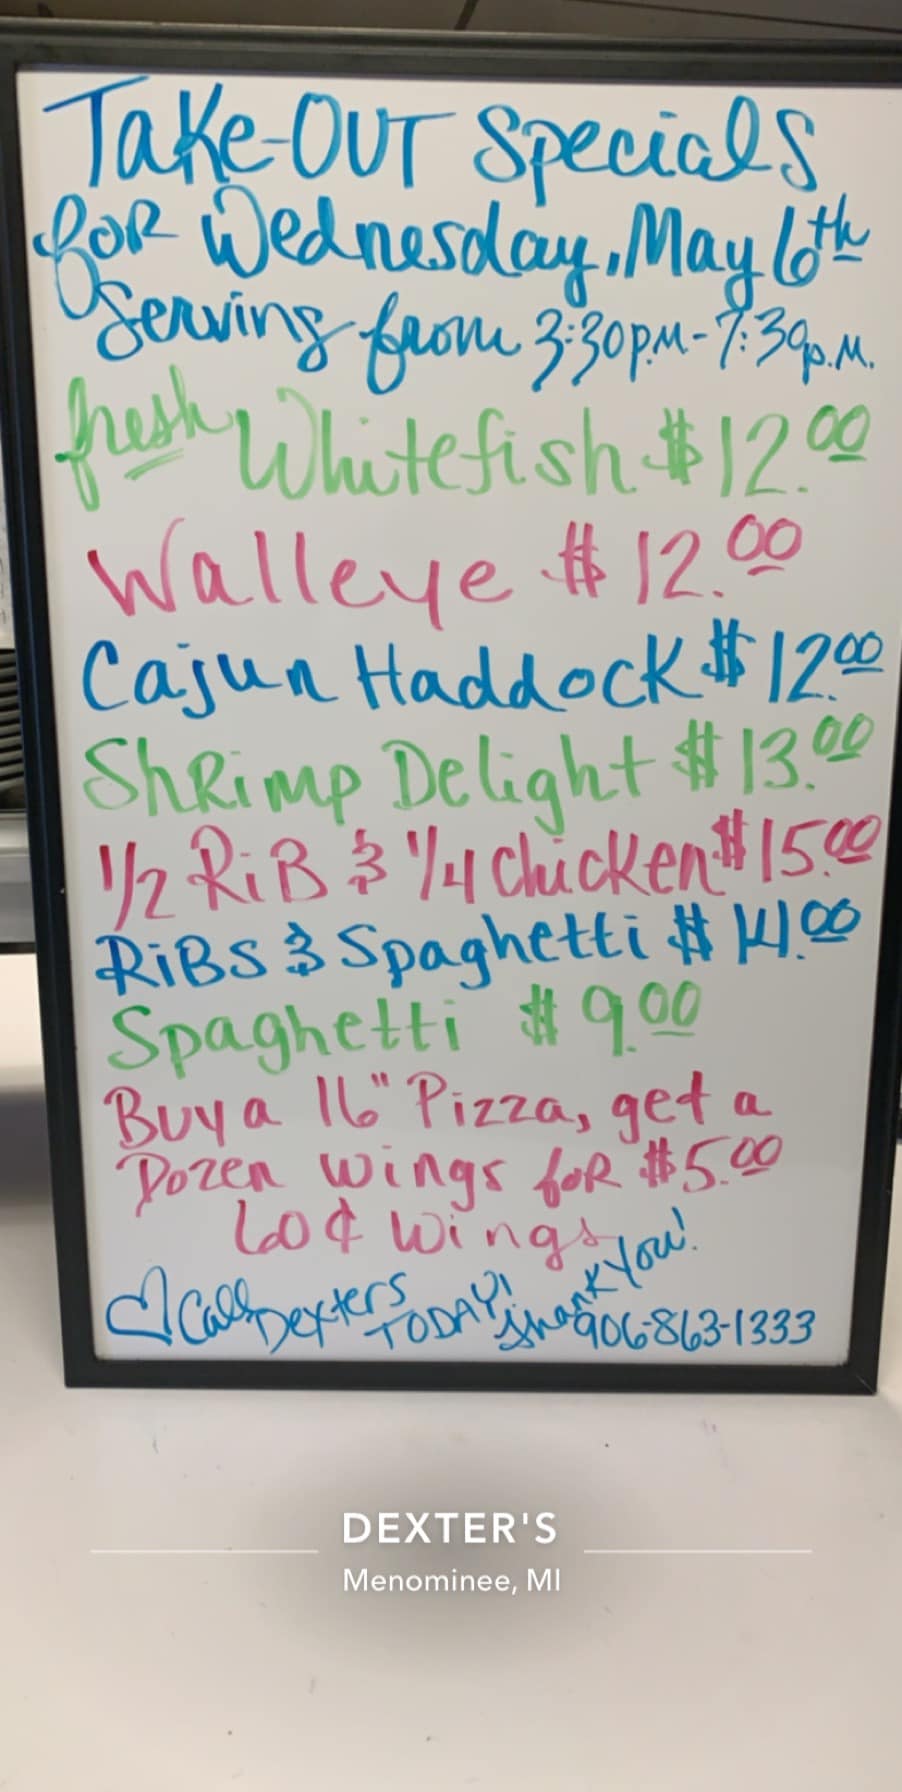 Take-Out Specials
for Wednesday, May 6th
Serving from 3:30p.m-7:30p.m.
fresh Whitefish $12.00
Walleye $12.00
Cajun Haddock $12.00
Shrimp Delight $13.00
1/2 Rib & 1/4 Chicken $15.00
Ribs & Spaghetti $14.00
Spaghetti $9.00
Buy a 16" Pizza, get a
Dozen wings for $5.00
60¢ wings
♡ Call Dexters TODAY! Thank You!
906-863-1333
DEXTER'S
Menominee, MI